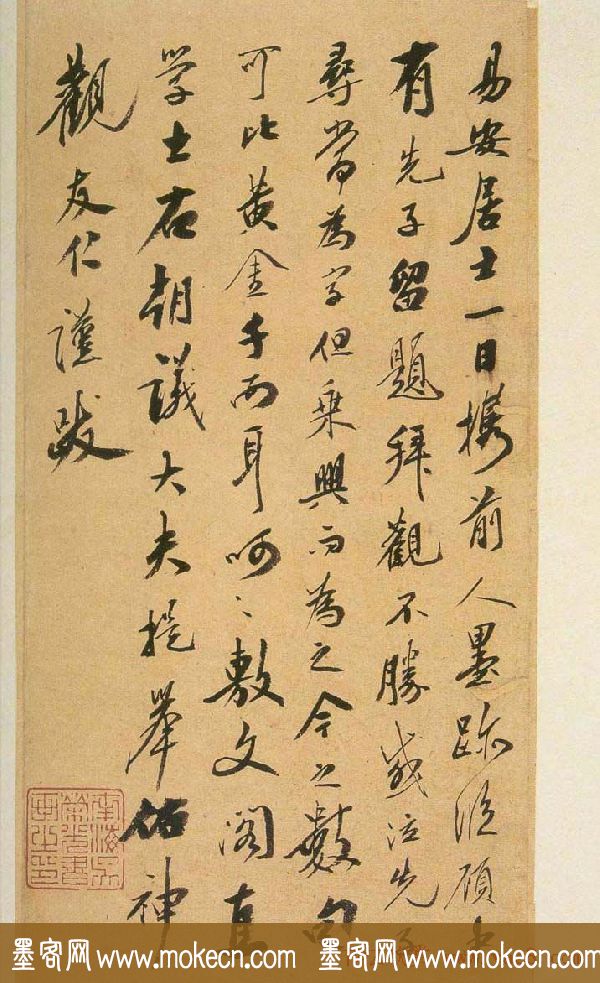 易安居士一日携前人墨跡臨顧中
有先子留題拜觀不勝感泣先子
尋常為字但乘興而為之今之數句
可比黃金千兩耳呵〻敷文閣直
学士右朝議大夫提舉佑神
觀友仁謹跋
南海吳
榮光書
畫之印
墨客网 www.mokecn.com 墨客网 www.mokecn.com